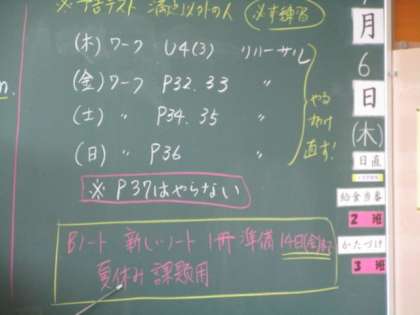 ※予告テスト 満点以外の人 必ず練習
(木) ワーク U4(3) リハーサル
(金) ワーク P32.33 〃
(土) 〃 P34.35 〃
(日) 〃 P36 〃
やる
直す!
※ P37はやらない
Bノート 新しいノート 1冊 準備 14日(金)
夏休み 課題用
月
6
日
(木)
日直
給食当番
2 班
かたづけ
3 班